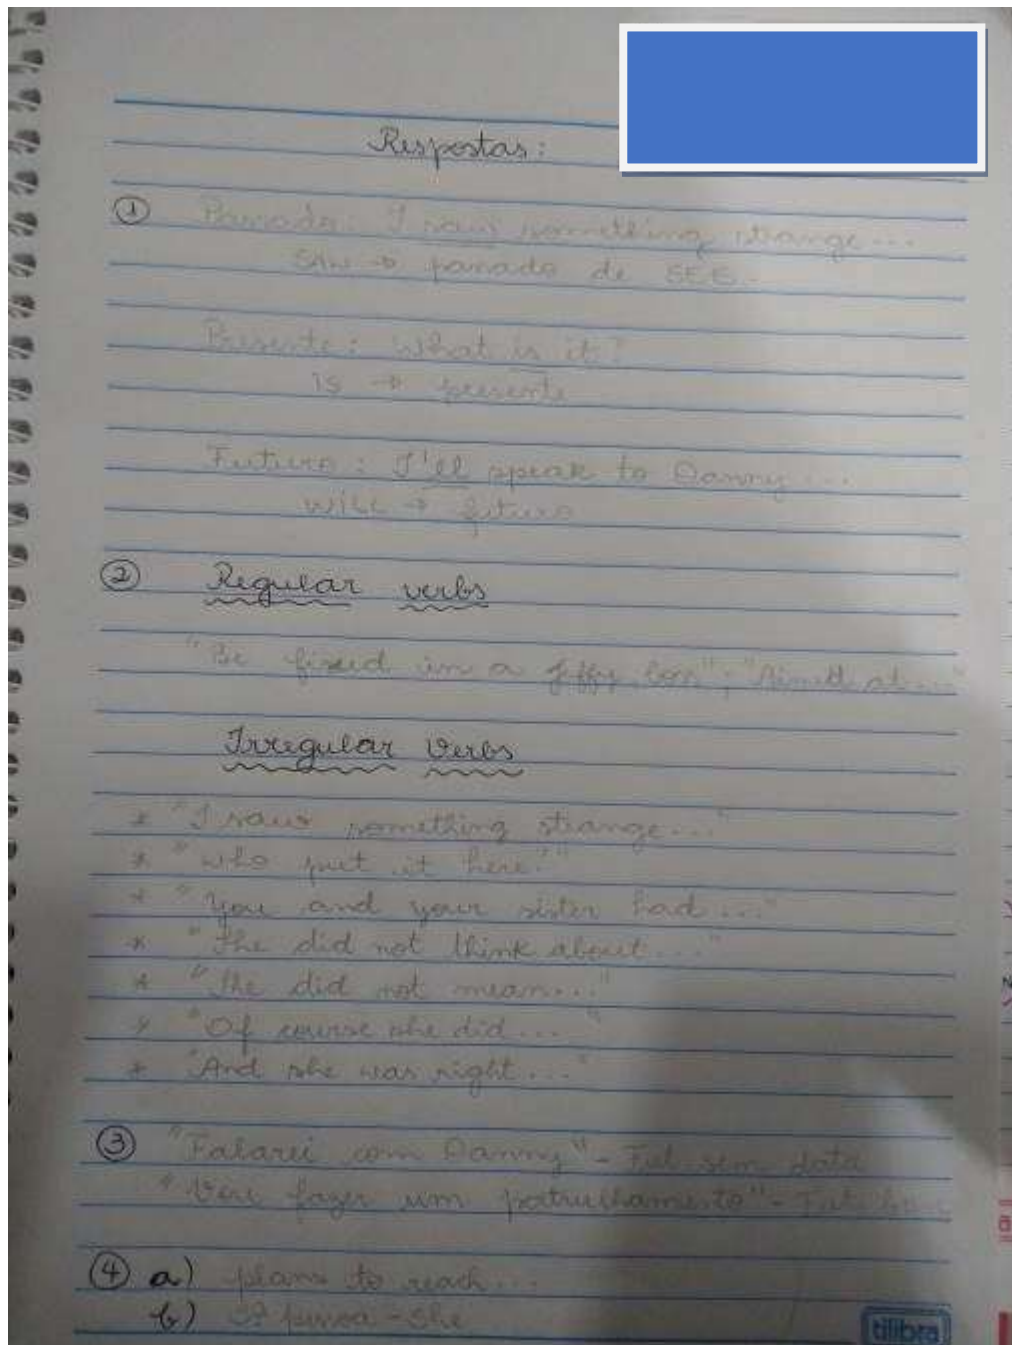 Respostas:
① Passado: I saw something strange...
SAW → passado de SEE.
Presente: What is it?
is → presente
Futuro: I'll speak to Danny...
will → futuro
② Regular verbs
"Be fixed in a jiffy, boss"; at..."
Irregular Verbs
* "I saw something strange..."
* "Who put it here?"
* "You and your sister had..."
* "She did not think about..."
* "She did not mean..."
* "Of course she did..."
* "And she was right..."
③ "Falarei com Danny" - Fut. sem data
fazer um patrulhamento" -
④ a) plans to reach...
b) 3ª pessoa - She
tilibra